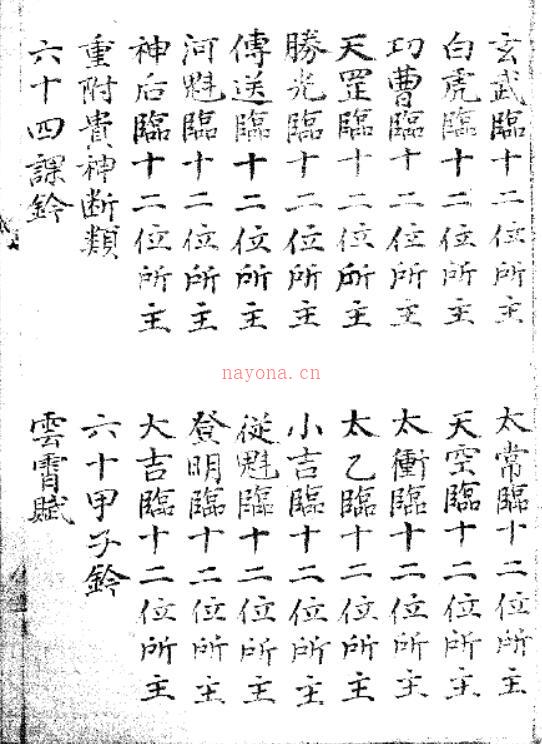 玄武臨十二位所主
太常臨十二位所主
白虎臨十二位所主
天空臨十二位所主
功曹臨十二位所主
太衝臨十二位所主
天罡臨十二位所主
太乙臨十二位所主
勝光臨十二位所主
小吉臨十二位所主
傳送臨十二位所主
從魁臨十二位所主
河魁臨十二位所主
登明臨十二位所主
神后臨十二位所主
大吉臨十二位所主
重附貴神断類
六十甲子鈐
六十四課鈐
雲霄賦
nayona.cn